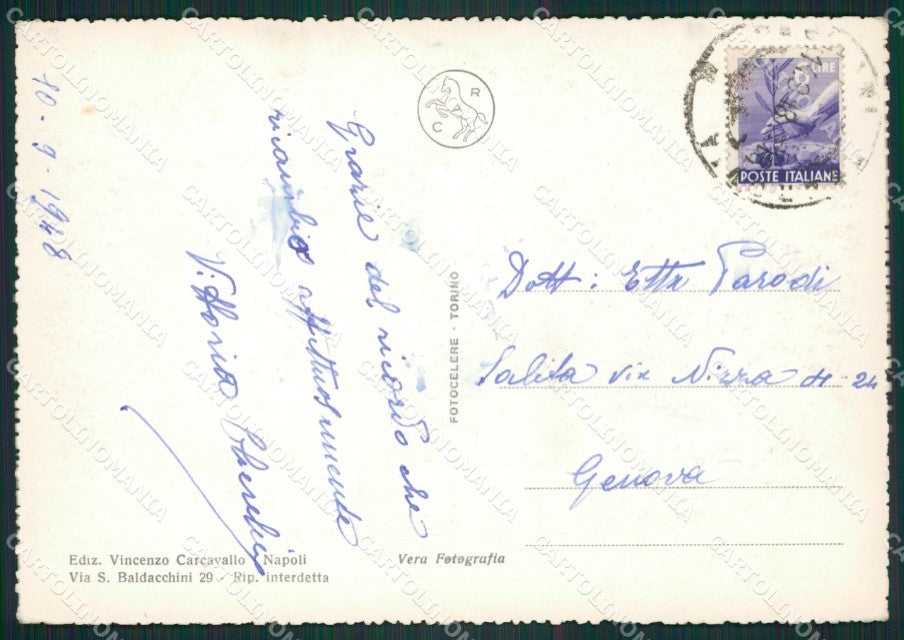 10-9-1948
Grazie del ricordo che
ricambio affettuosamente
Vittoria
C R
6 LIRE
POSTE ITALIANE
FOTOCELERE - TORINO
Dott: Parodi
Salita via Nizza 4-24
Genova
Ediz. Vincenzo Carcavallo - Napoli
Via S. Baldacchini 29 - Rip. interdetta
Vera Fotografia
CARTOLINOMANIA